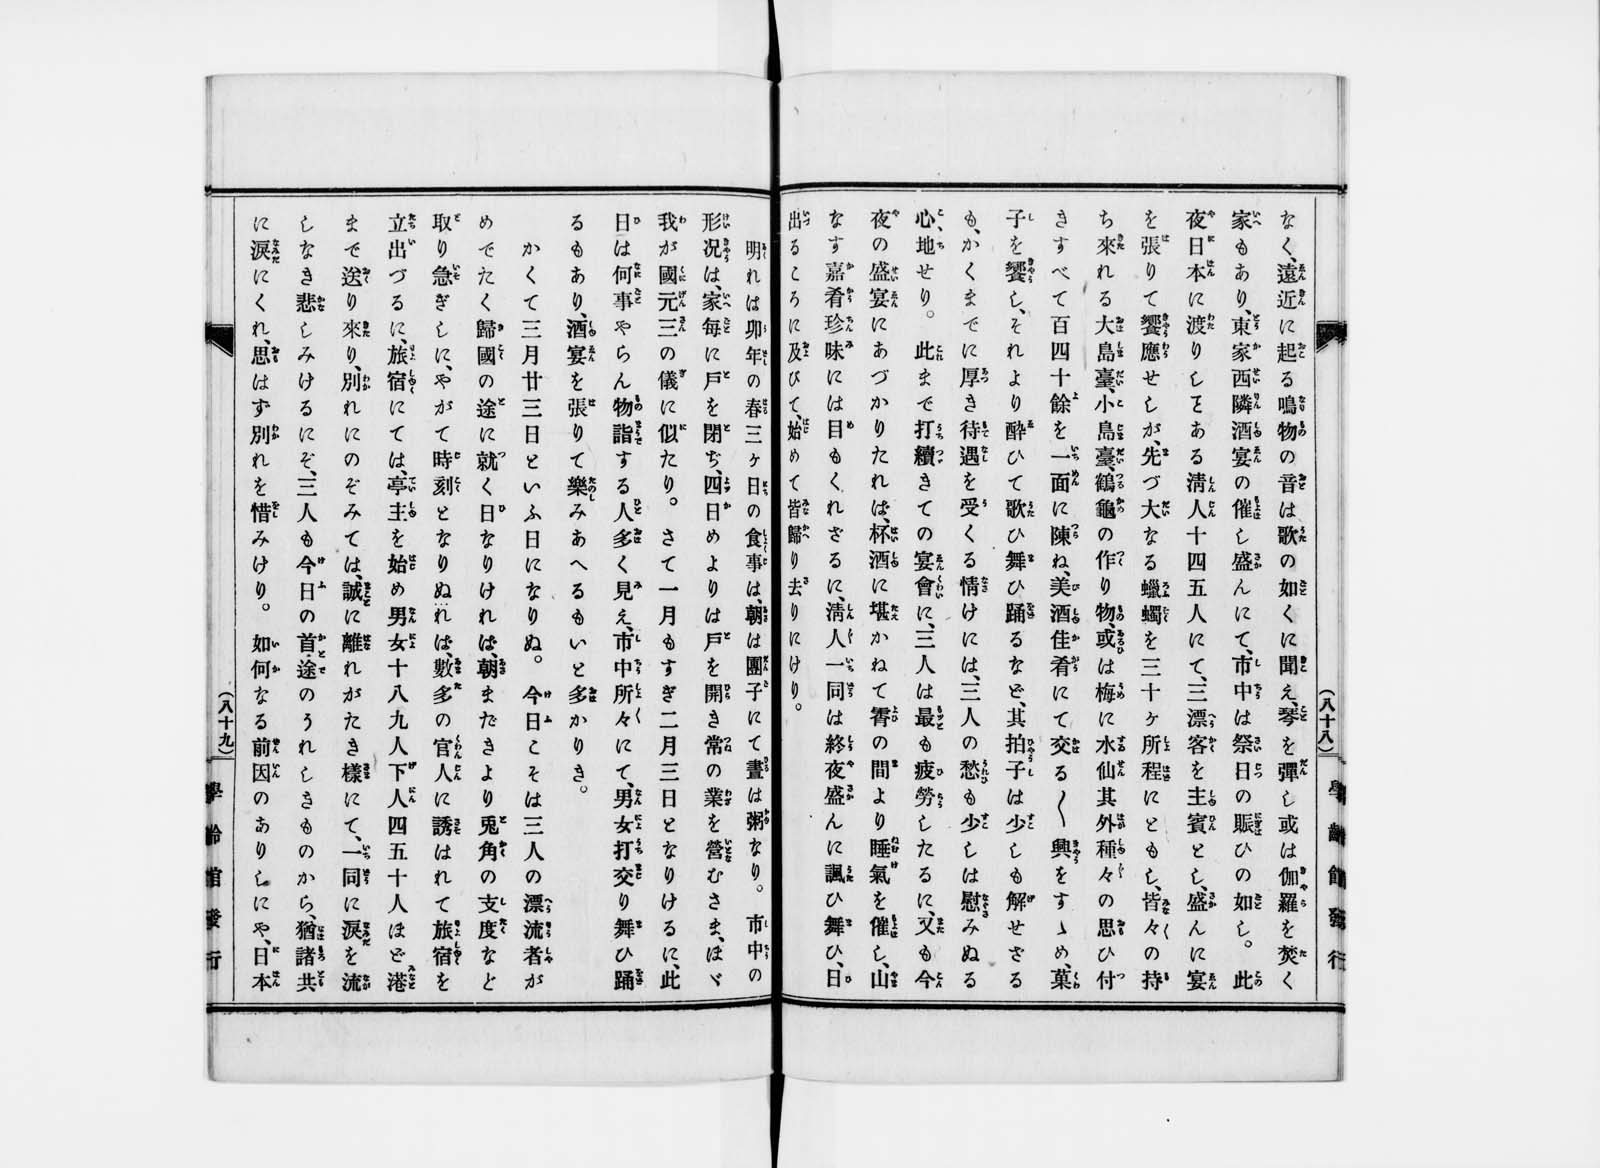 なく、遠近に起る鳴物の音は歌の如くに聞え、琴を彈し或は伽羅を焚く
家もあり、東家西隣酒宴の催し盛んにて、市中は祭日の賑ひの如し。此
夜日本に渡りしとある淸人十四五人にて、三漂客を主賓とし、盛んに宴
を張りて饗應せしが、先づ大なる蠟蠋を三十ヶ所程にともし、皆々の持
ち來れる大島臺、小島臺、鶴龜の作り物、或は梅に水仙其外種々の思ひ付
きすべて百四十餘を一面に陳ね、美酒佳肴にて交る〳〵興をすゝめ、菓
子を饗し、それより醉ひて歌ひ舞ひ踊るなど、其拍子は少しも解せざる
も、かくまでに厚き待遇を受くる情けには、三人の愁も少しは慰みぬる
心地せり。此まで打續きての宴會に、三人は最も疲勞したるに、又も今
夜の盛宴にあづかりたれば、杯酒に堪かねて霄の間より睡氣を催し、山
なす嘉肴珍味には目もくれざるに、淸人一同は終夜盛んに諷ひ舞ひ、日
出るころに及びて、始めて皆歸り去りにけり。
(八十八)
學齡館發行
明れは卯年の春三ヶ日の食事は、朝は團子にて晝は粥なり。市中の
形况は、家每に戸を閉ぢ、四日めよりは戸を開き常の業を營むさま、ほゞ
我が國元三の儀に似たり。さて一月もすぎ二月三日となりけるに、此
日は何事やらん物詣する人多く見え、市中所々にて、男女打交り舞ひ踊
るもあり、酒宴を張りて樂みあへるもいと多かりき。
かくて三月廿三日といふ日になりぬ。今日こそは三人の漂流者が
めでたく歸國の途に就く日なりければ、朝まだきより兎角の支度など
取り急ぎしに、やがて時刻となりぬれば、數多の官人に誘はれて旅宿を
立出づるに、旅宿にては、亭主を始め男女十八九人下人四五十人ほど港
まで送り來り、別れにのぞみては、誠に離れがたき樣にて、一同に淚を流
しなき悲しみけるにぞ、三人も今日の首途のうれしきものから、猶諸共
に淚にくれ、思はず別れを惜みけり。如何なる前因のありしにや、日本
(八十九)
學齡館發行